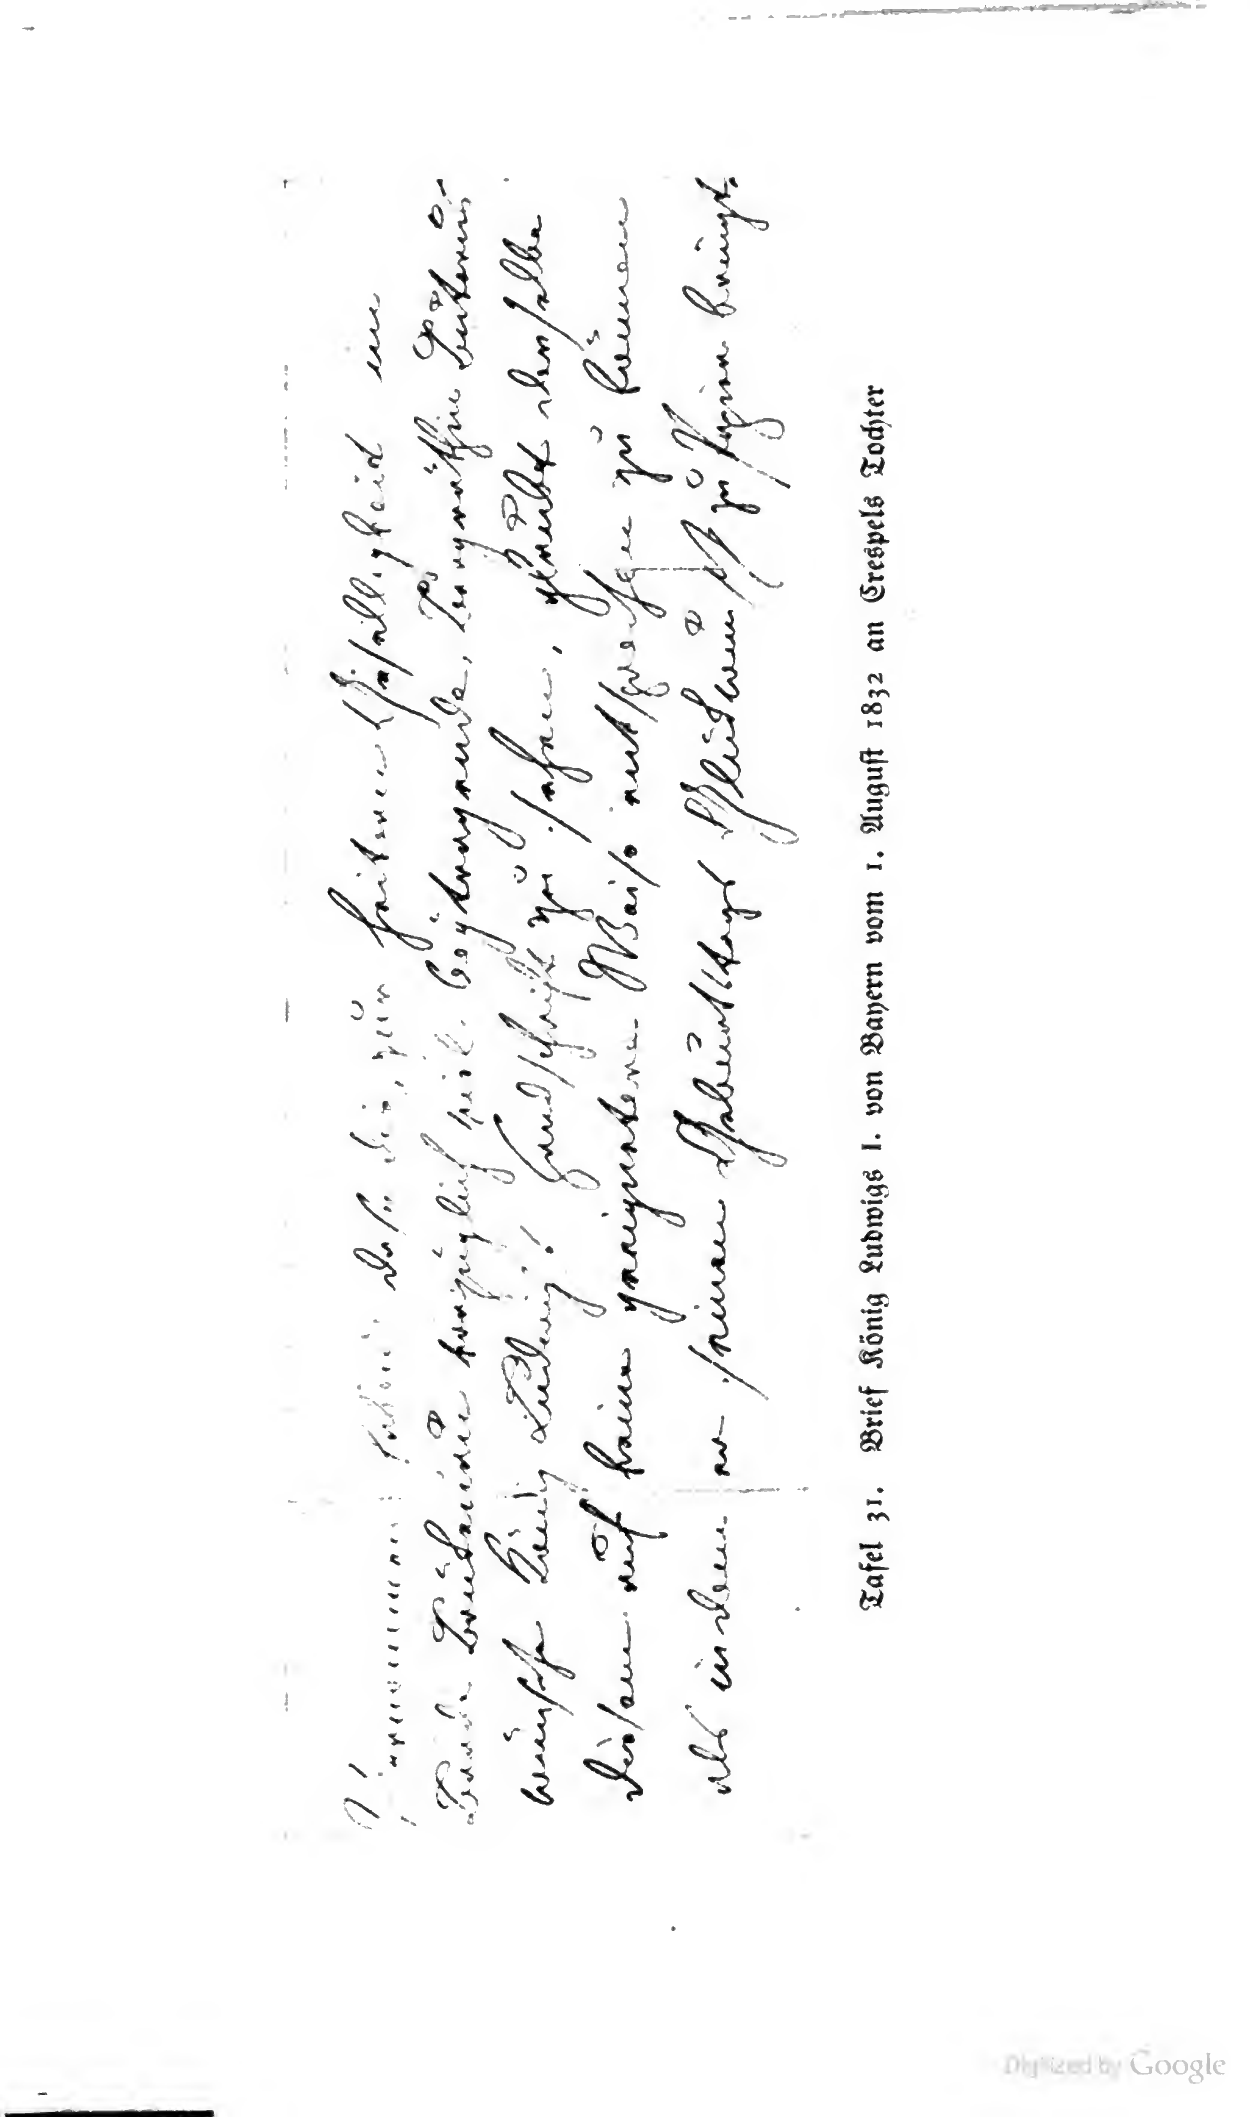 Vernommen habend daß die, zur heiteren Geselligkeit im
Bade Brückenau vorzüglich viel beytragende, Demoiselle
wünsche König Ludwig's Handschrift zu sehen, glaubt derselbe
diesem auf keine geeignetere Weise entsprechen zu können
als indem er seinen Geburtstags Glückwunsch zu Papier bringt.
Tafel 31. Brief König Ludwigs I. von Bayern vom 1. August 1832 an Crespels Tochter
Digitized by Google